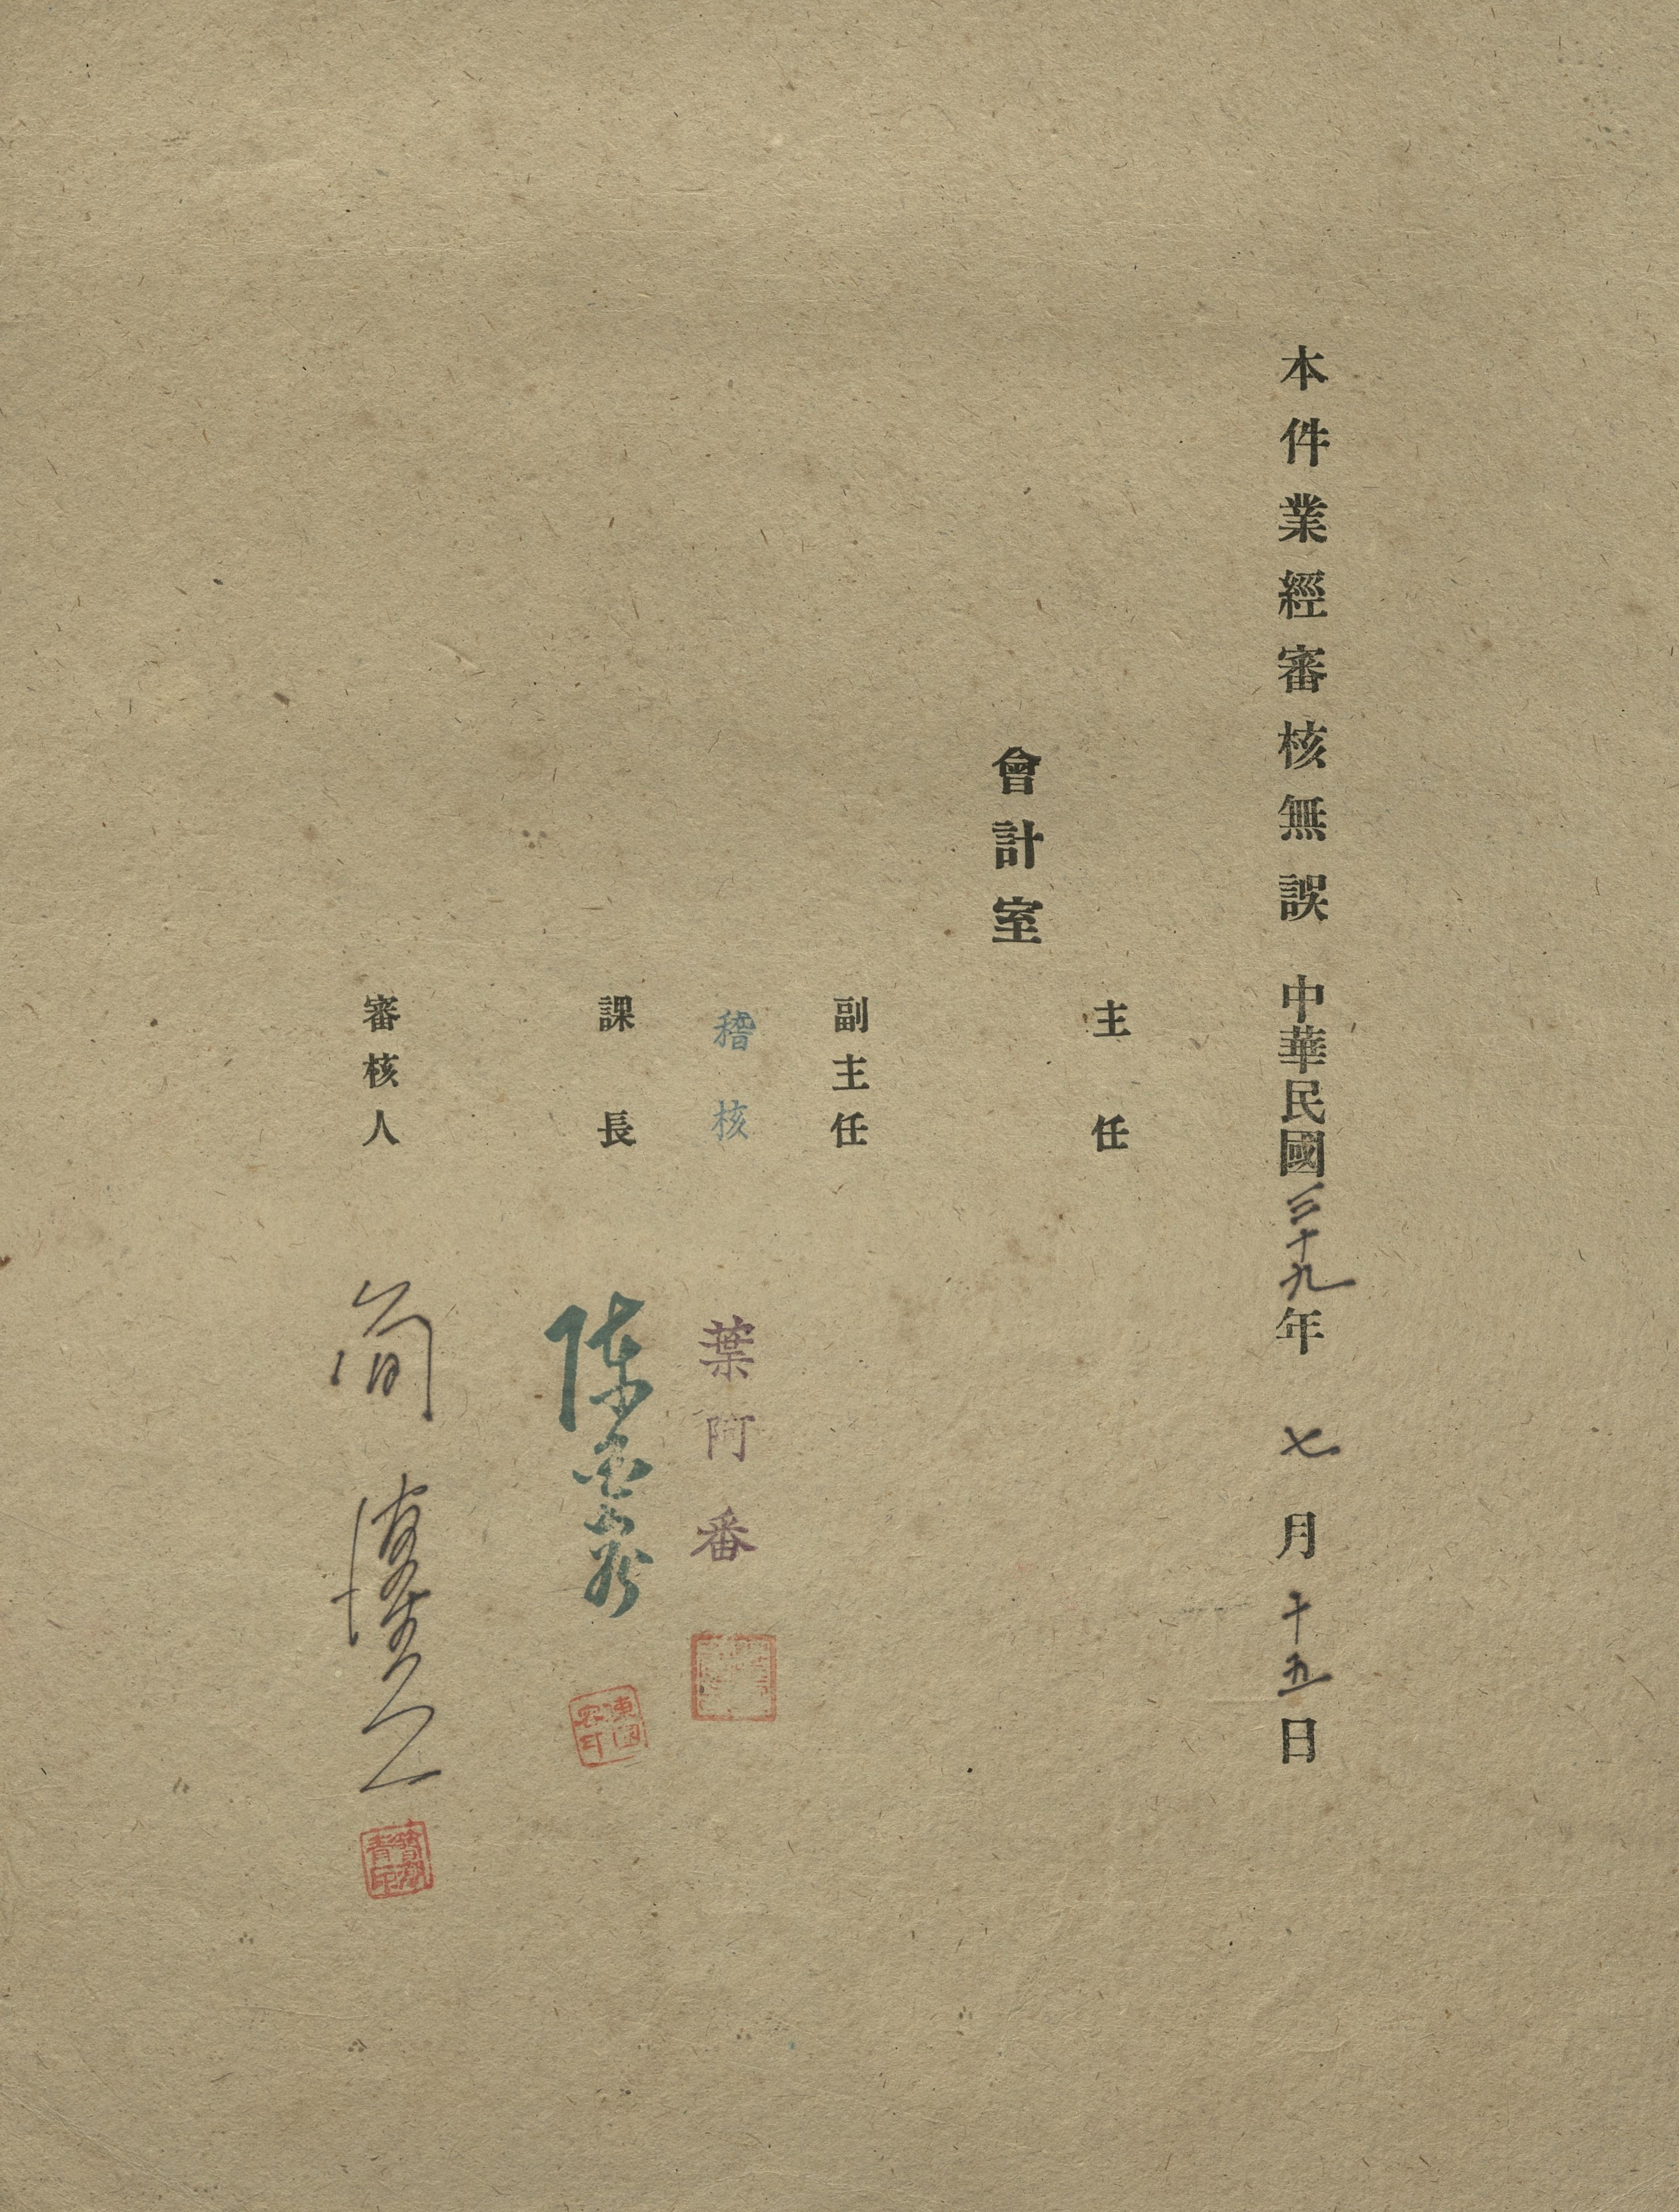 本件業經審核無誤 中華民國三十九年七月十五日
主任
會計室
副主任
稽核 葉阿番
課長 陳
審核人 簡